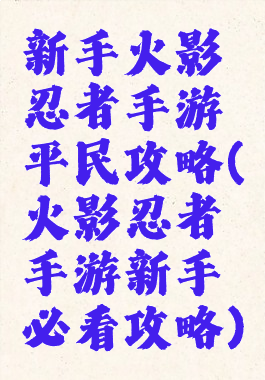 新手火影
忍者手游
平民攻略(
火影忍者
手游新手
必看攻略)